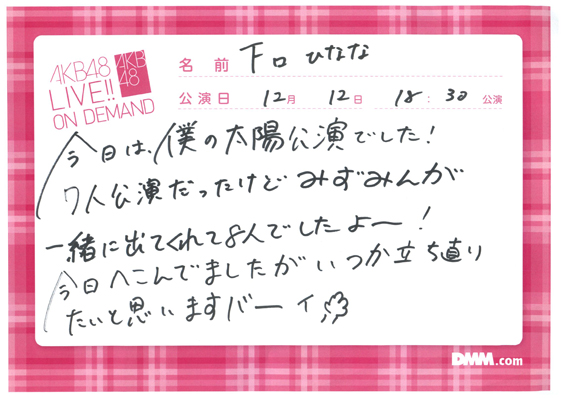 AKB48
LIVE!!
ON DEMAND
AKB
48
名前 下口ひなな
公演日 12月 12日 18:30 公演
今日は、僕の太陽公演でした!
7人公演だったけど みずみんが
一緒に出てくれて8人でしたよ〜!
今日へこんでましたがいつか立ち直り
たいと思いますバーイ
DMM.com